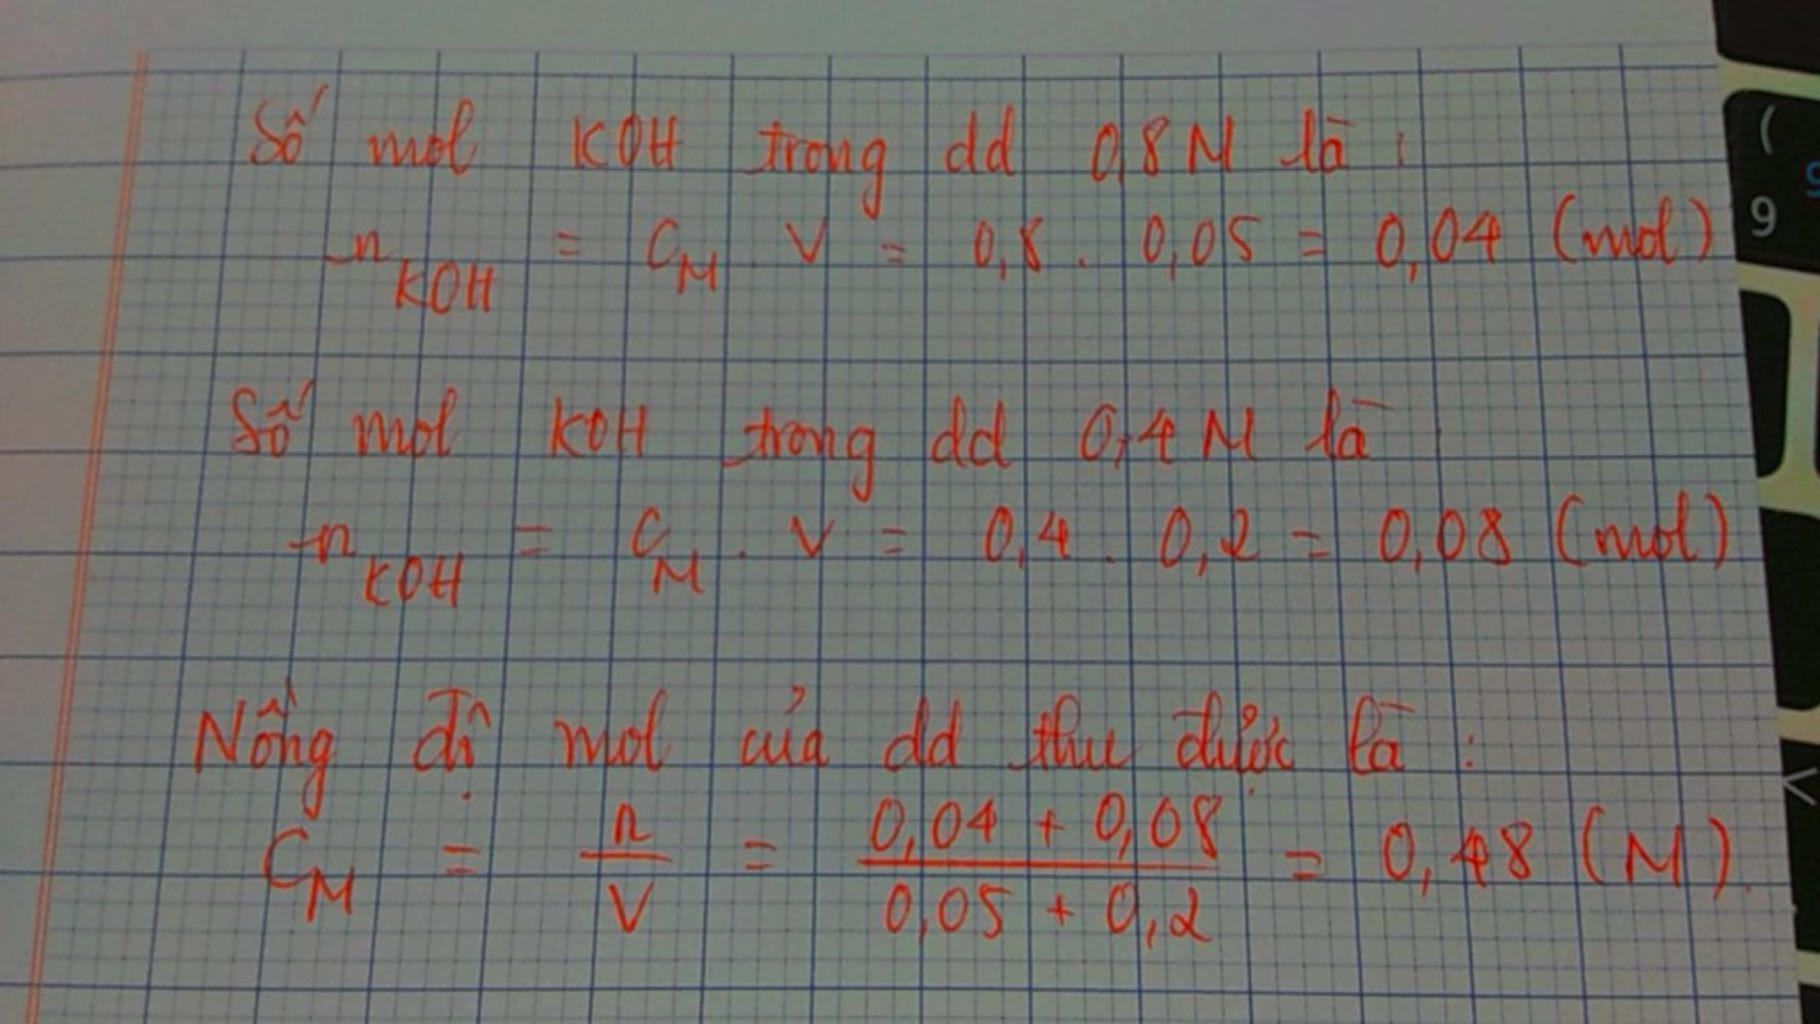 Số mol KOH trong dd 0,8M là :
n KOH = CM . V = 0,8 . 0,05 = 0,04 (mol)
Số mol KOH trong dd 0,4M là :
n KOH = CM . V = 0,4 . 0,2 = 0,08 (mol)
Nồng độ mol của dd thu được là :
CM = n/V = (0,04 + 0,08)/(0,05 + 0,2) = 0,48 (M).
(
9
<